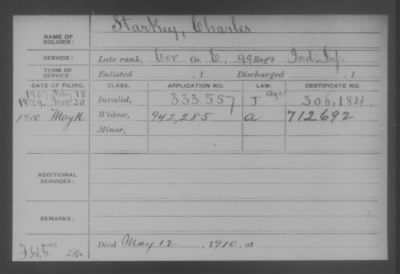 Starkey, Charles
NAME OF SOLDIER:
SERVICE: Late rank, Cor Co. E, 99 Reg't Ind. Inf.
TERM OF SERVICE: Enlisted , 1 Discharged , 1
DATE OF FILING. CLASS. APPLICATION NO. LAW. CERTIFICATE NO.
1879 Nov 20 Invalid, 333.557 J 306.184
1910 May 16 Widow, 942,285 a 712692
Minor,
ADDITIONAL SERVICES:
REMARKS:
Died May 12, 1910, at